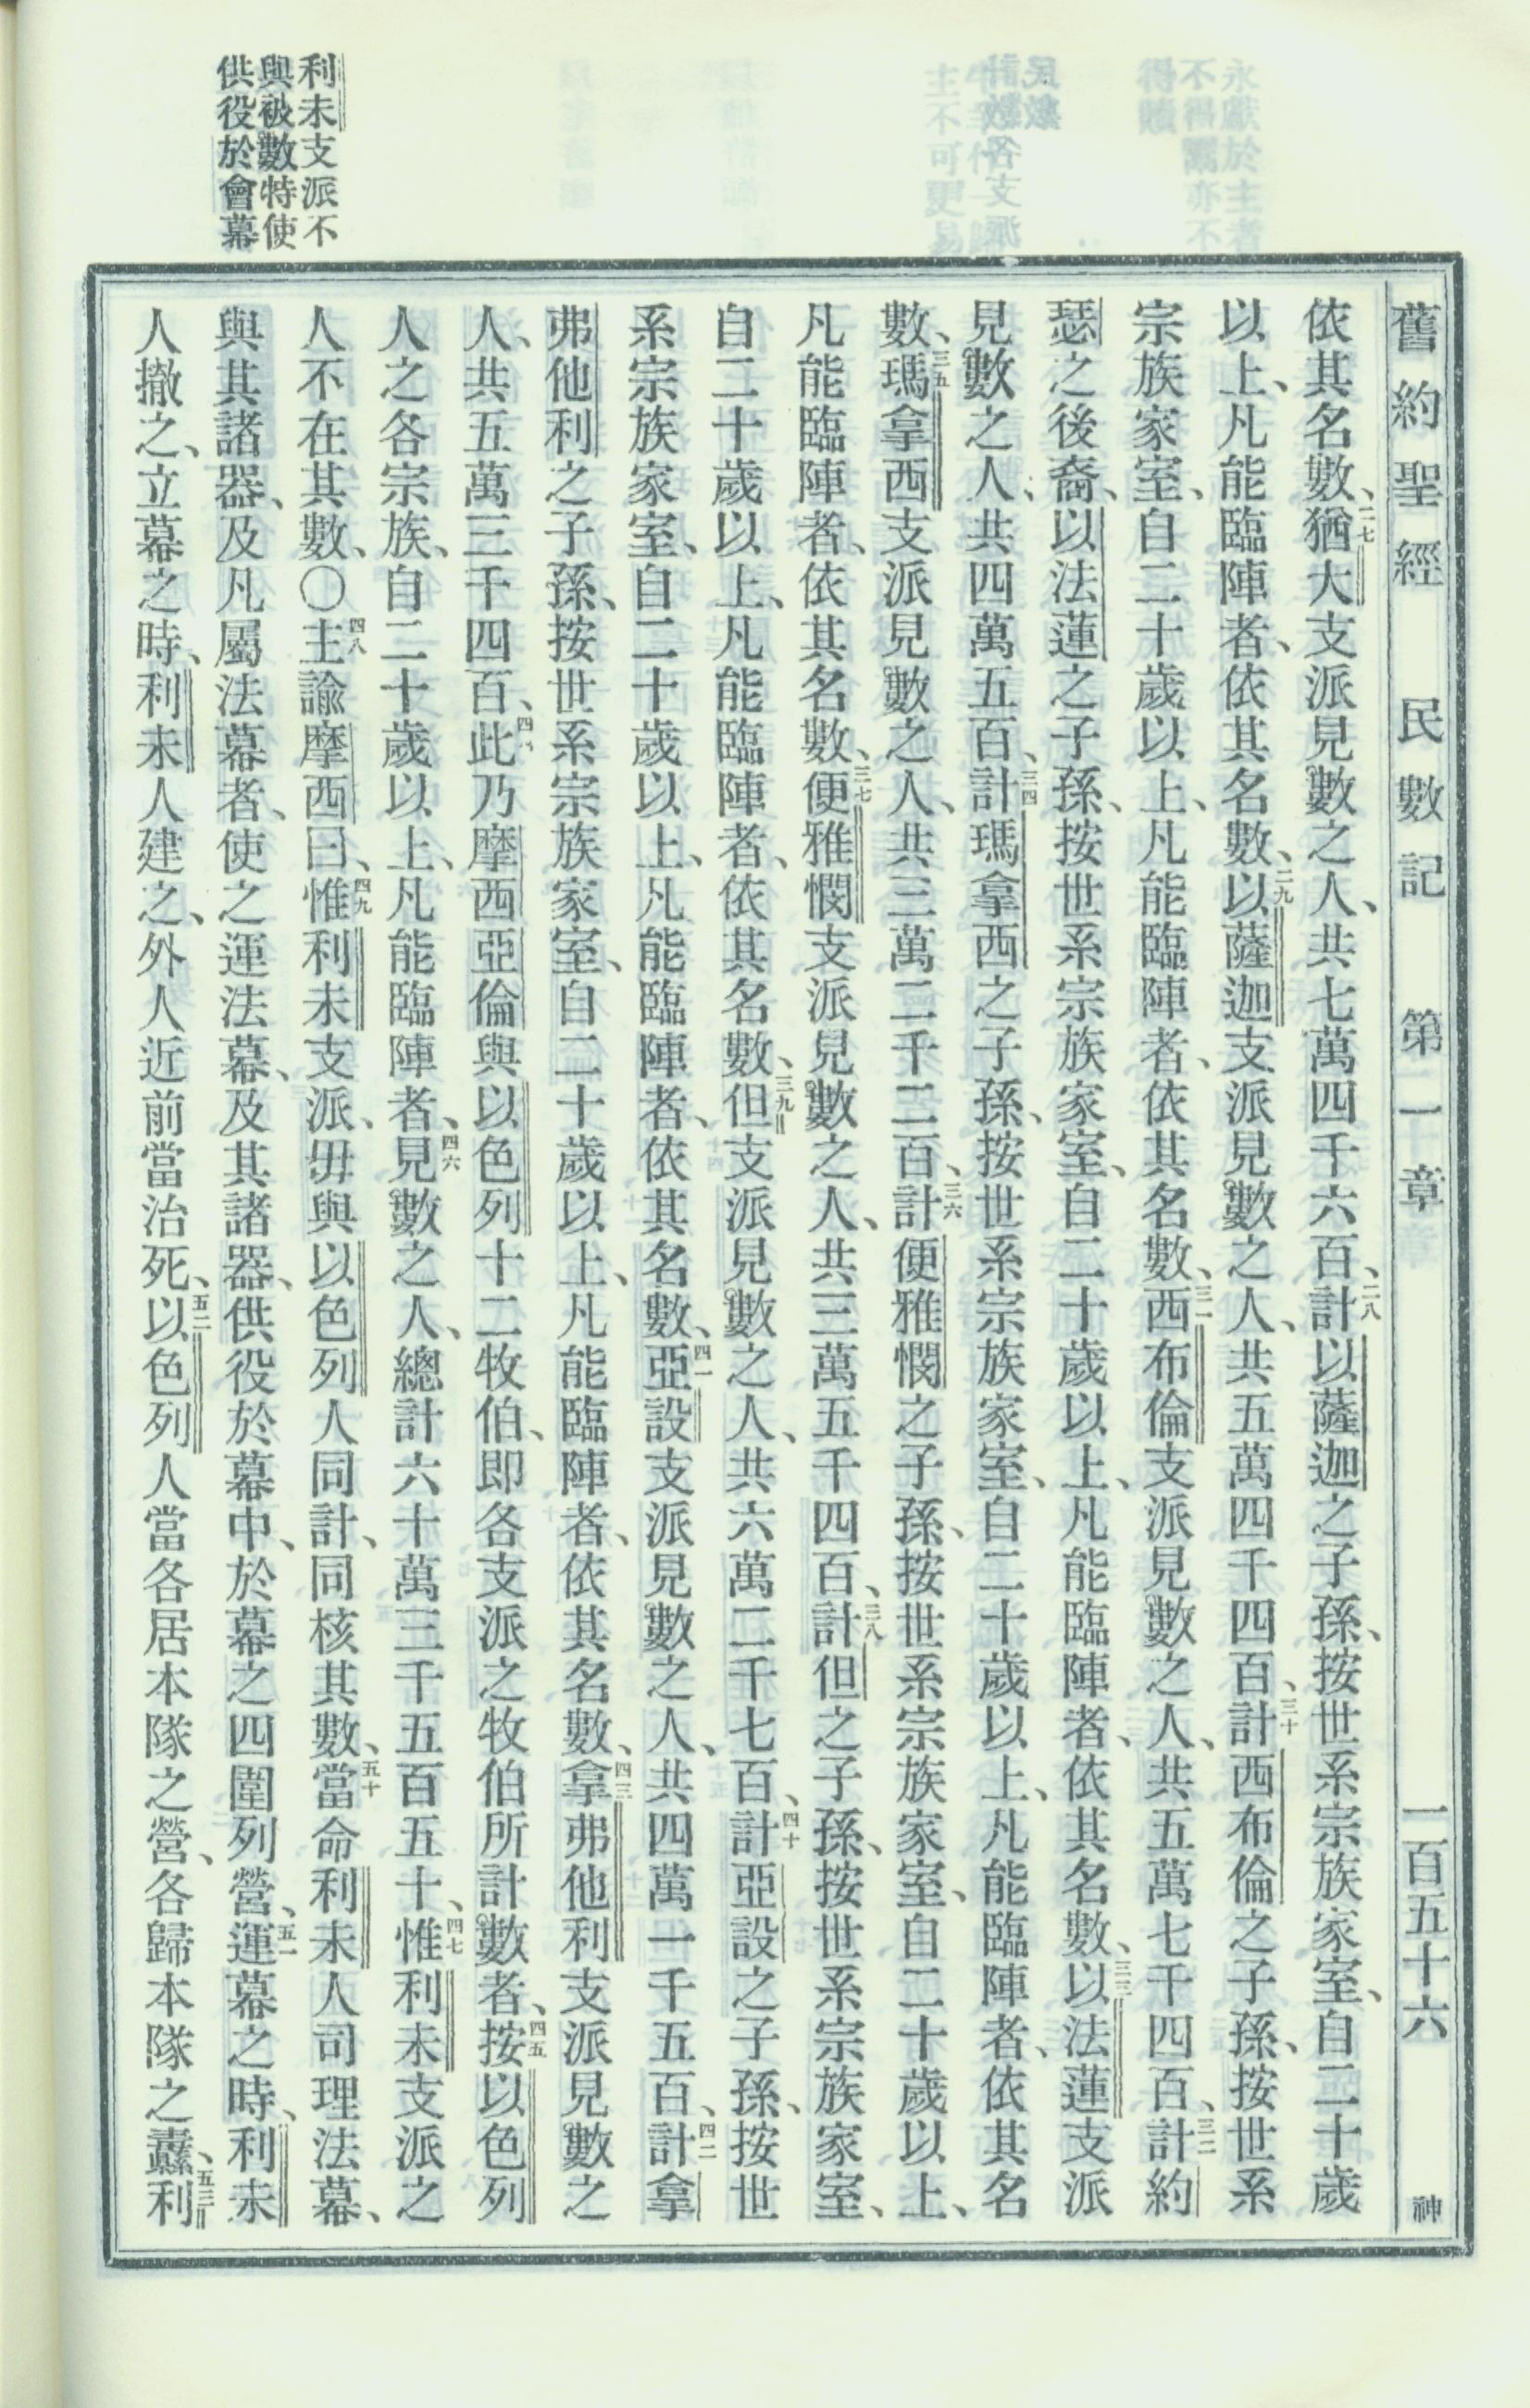 舊約聖經　民數記　第一章　一百五十六　神
依其名數、二七猶大支派見數之人、共七萬四千六百、二八計以薩迦之子孫、按世系宗族家室、自二十歲
以上、凡能臨陣者、依其名數、二九以薩迦支派見數之人、共五萬四千四百、三十計西布倫之子孫、按世系
宗族家室、自二十歲以上、凡能臨陣者、依其名數、三一西布倫支派見數之人、共五萬七千四百、三二計約
瑟之後裔、以法蓮之子孫、按世系宗族家室、自二十歲以上、凡能臨陣者、依其名數、三三以法蓮支派
見數之人、共四萬五百、三四計瑪拿西之子孫、按世系宗族家室、自二十歲以上、凡能臨陣者、依其名
數、三五瑪拿西支派見數之人、共三萬二千二百、三六計便雅憫之子孫、按世系宗族家室、自二十歲以上、
凡能臨陣者、依其名數、三七便雅憫支派見數之人、共三萬五千四百、三八計但之子孫、按世系宗族家室、
自二十歲以上、凡能臨陣者、依其名數、三九但支派見數之人、共六萬二千七百、四十計亞設之子孫、按世
系宗族家室、自二十歲以上、凡能臨陣者、依其名數、四一亞設支派見數之人、共四萬一千五百、四二計拿
弗他利之子孫、按世系宗族家室、自二十歲以上、凡能臨陣者、依其名數、四三拿弗他利支派見數之
人、共五萬三千四百、此乃摩西亞倫與以色列十二牧伯、即各支派之牧伯所計數者、四五按以色列
人之各宗族、自二十歲以上、凡能臨陣者、四六見數之人、總計六十萬三千五百五十、四七惟利未支派之
人不在其數、〇四八主諭摩西曰、四九惟利未支派、毋與以色列人同計、同核其數、五十當命利未人司理法幕、
與其諸器、及凡屬法幕者、使之運法幕、及其諸器、供役於幕中、於幕之四圍列營、五一運幕之時、利未
人撤之、立幕之時、利未人建之、外人近前當治死、五二以色列人當各居本隊之營、各歸本隊之纛、五三利
利未支派不
與被數特使
供役於會幕